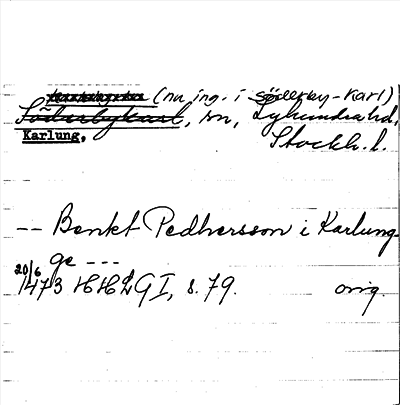 (nu ing. i Söderby-Karl)
Söderbykarl, sn, Lyhundra hd,
Karlung, Stockh. l.
-- Benkt Pedhersson i Karlung-
ge ---
20/6 1473 HHLG I, s. 79. orig.